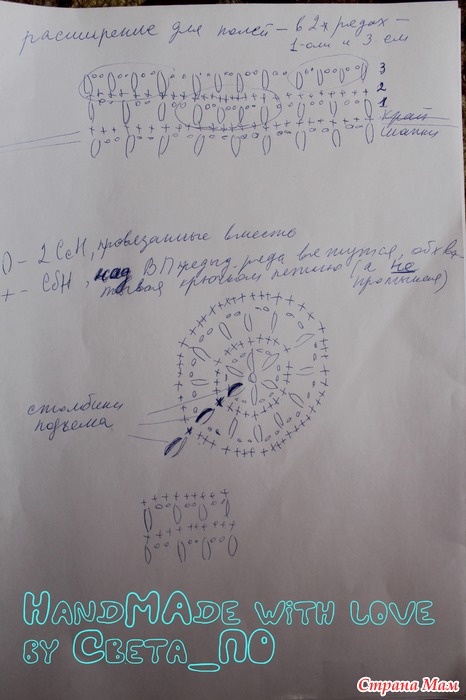 расширение для полей – в 2х рядах –
1-ом и 3 ем
3
2
1
край
шапки
() – 2 СсН, провязанные вместе
+ – СБН, над ВП предыд. ряда вяжутся, обхва-
тывая крючком петлю (а не
столбики
подъема
HANDMADE WITH LOVE
BY СВЕТА_ПО
Страна Мам